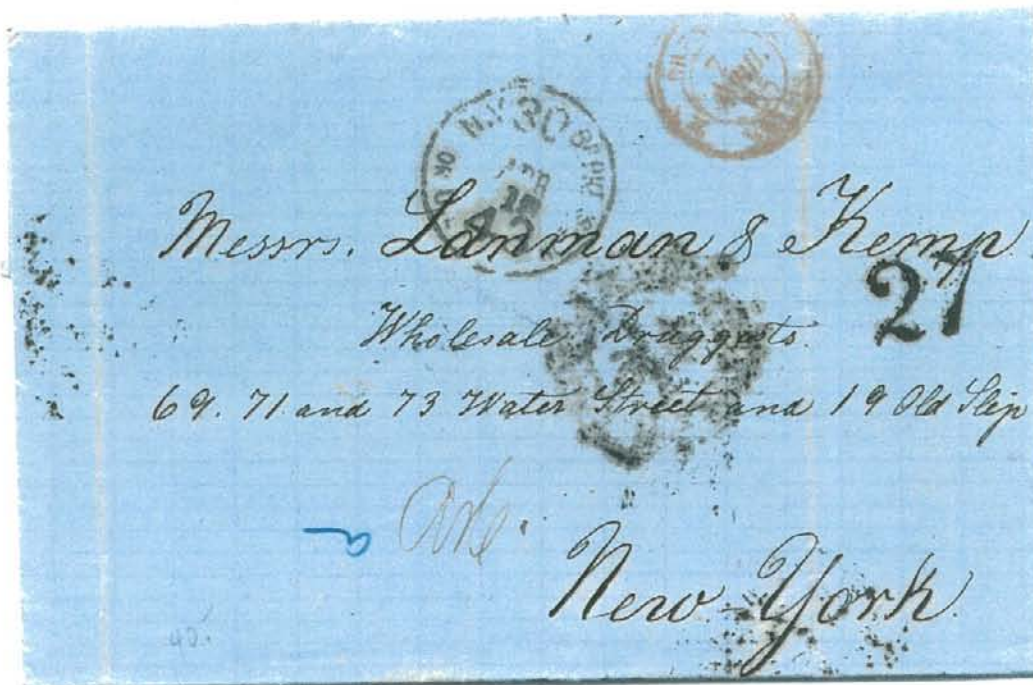 N.Y. 30
OR U.S.
APR
18
42
Messrs. Lanman & Kemp.
27
Wholesale Druggists.
69. 71 and 73 Water Street and 19 Old Slip
New York.
40.